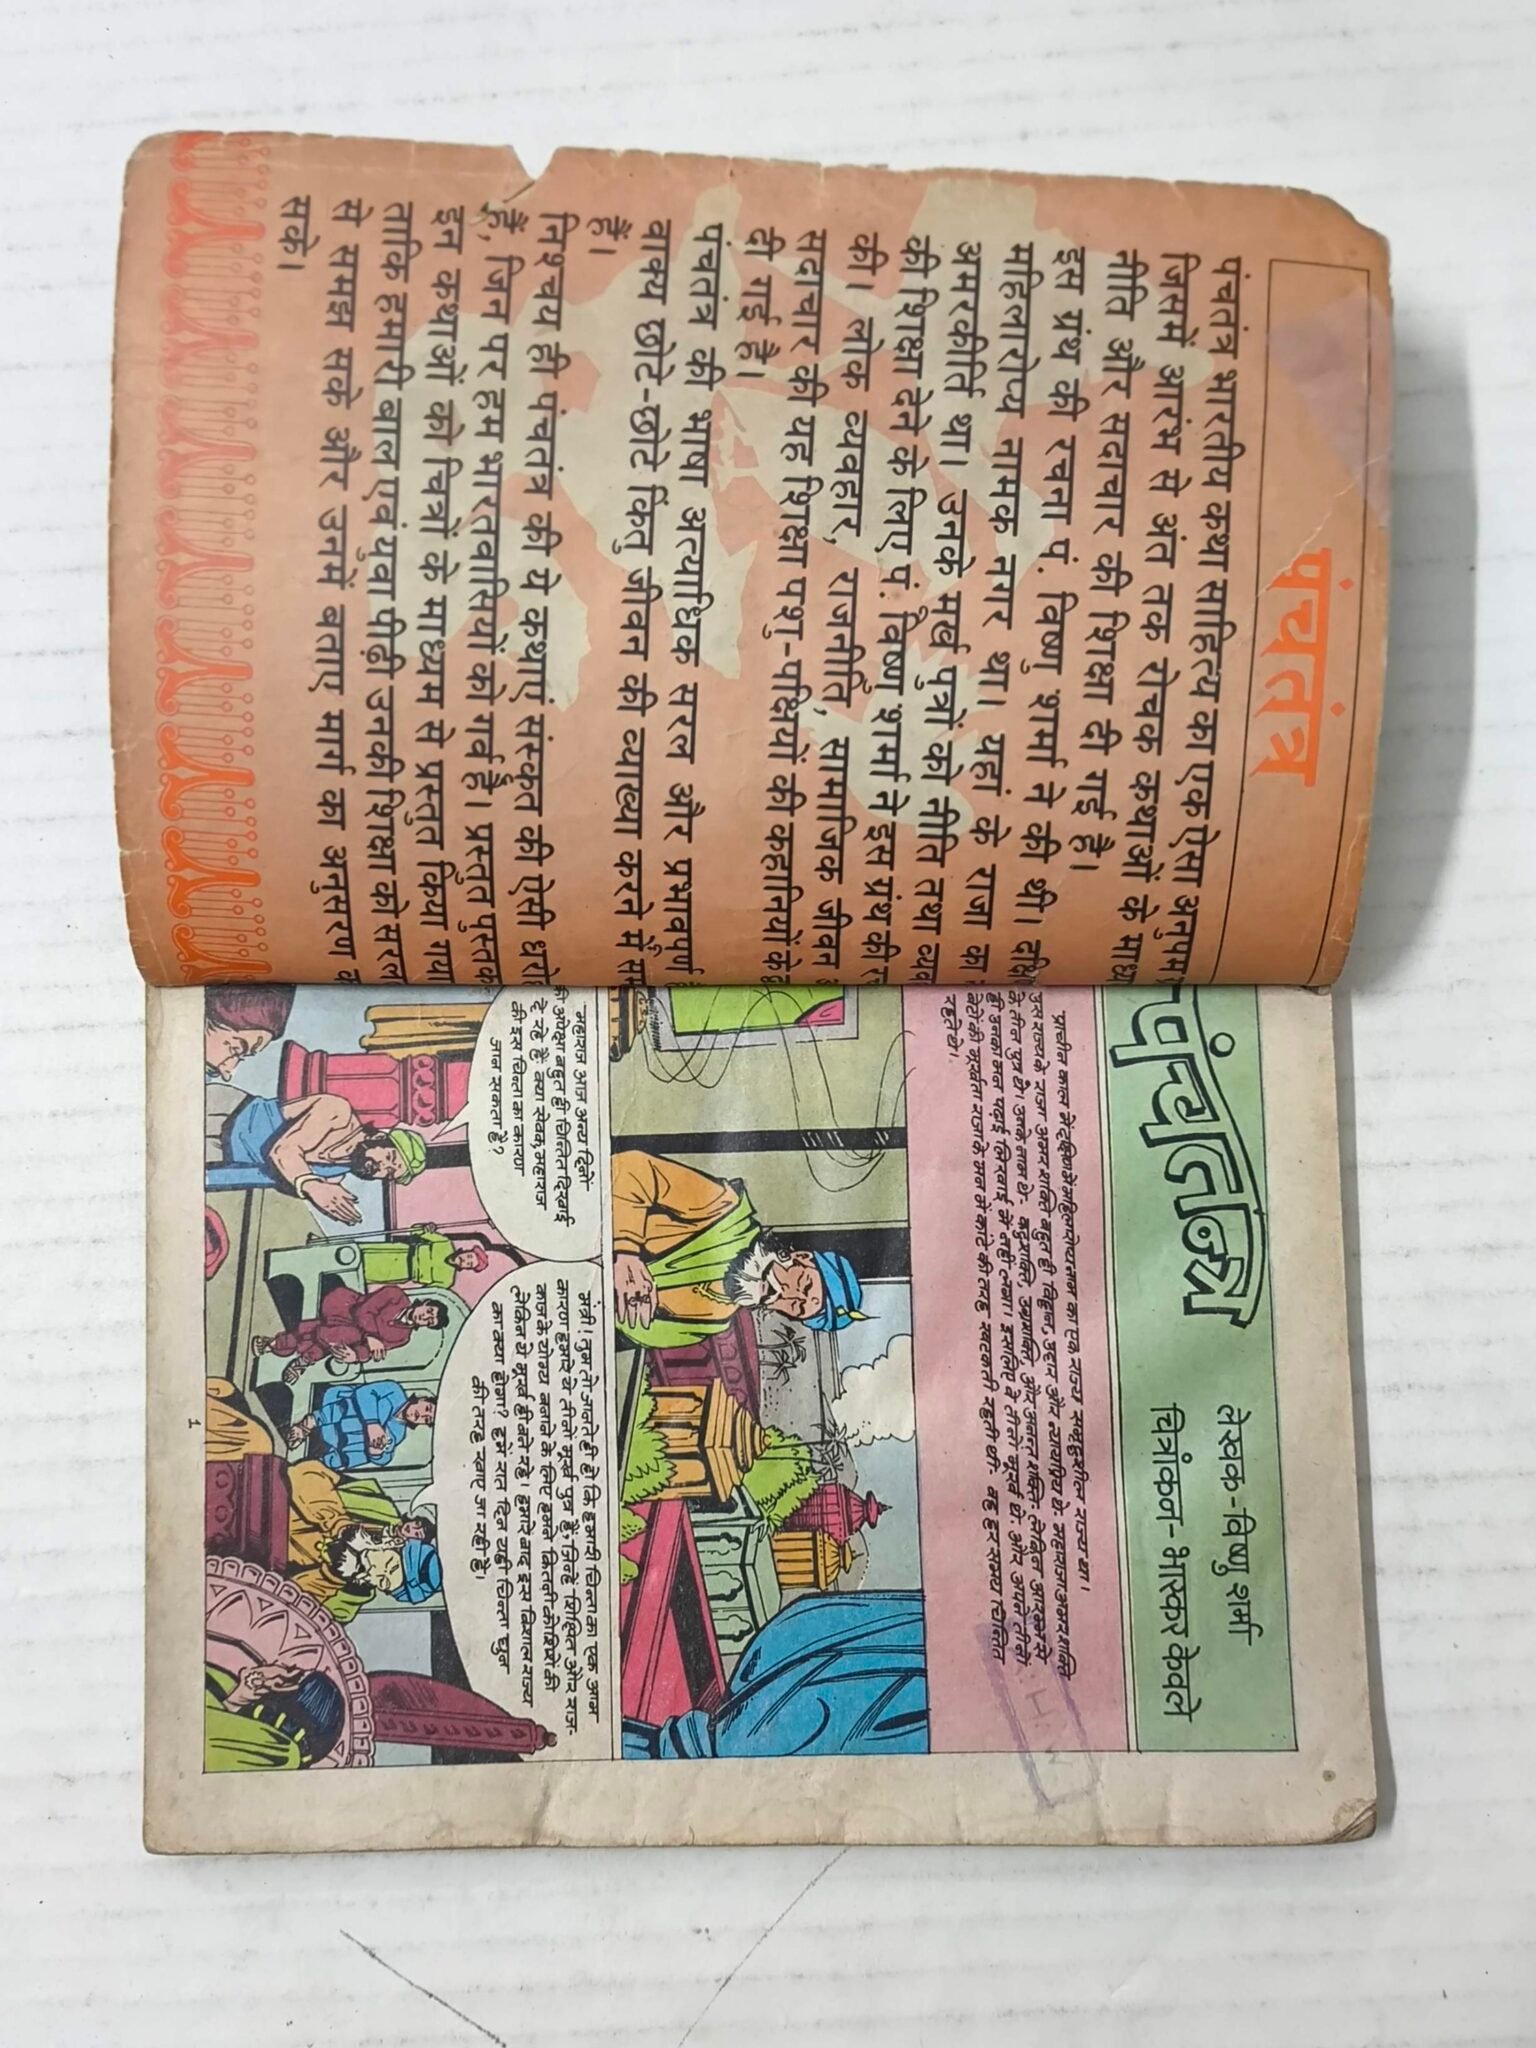 पंचतंत्र
पंचतंत्र भारतीय कथा साहित्य का एक ऐसा अनुपम
जिसमें आरंभ से अंत तक रोचक कथाओं के
नीति और सदाचार की शिक्षा दी गई है।
इस ग्रंथ की रचना पं. विष्णु शर्मा ने की थी।
महिलारोप्य नामक नगर था। यहां के राजा का
अमरकीर्ति था। उनके मूर्ख पुत्रों को नीति तथा
की शिक्षा देने के लिए पं. विष्णु शर्मा ने इस ग्रंथ की
की। लोक व्यवहार, राजनीति, सामाजिक जीवन
सदाचार की यह शिक्षा पशु-पक्षियों की कहानियों के
दी गई है।
पंचतंत्र की भाषा अत्याधिक सरल और प्रभावपूर्ण
वाक्य छोटे-छोटे किंतु जीवन की व्याख्या करने में
हैं।
निश्चय ही पंचतंत्र की ये कथाएं संस्कृत की ऐसी
हैं, जिन पर हम भारतवासियों को गर्व है। प्रस्तुत पुस्तक
इन कथाओं को चित्रों के माध्यम से प्रस्तुत किया गया
ताकि हमारी बाल एवं युवा पीढ़ी उनकी शिक्षा को
से समझ सके और उनमें बताए मार्ग का अनुसरण
सके।
पंचतन्त्र
लेखक-विष्णु शर्मा
चित्रांकन-भास्कर केवले
प्राचीन काल में दक्षिण के महिलारोप्य नामक का एक राज्य समृद्धशील राज्य था।
उस राज्य के राजा अमर शक्ति बहुत ही विद्वान, उदार और न्यायप्रिय थे. महाराजा अमरशक्ति
के तीन पुत्र थे। उनके नाम थे- बहुशक्ति, उग्रशक्ति, और अनंत शक्ति- लेकिन आरम्भ से
ही उनका मन पढ़ाई लिखाई में नहीं लगा। इसलिए वे तीनों मूर्ख थे. और अपने तीनों
बेटों की मूर्खता राजा के मन में कांटे की तरह खटकती रहती थी- वह हर समय चिंतित
रहते थे।
महाराज आज अन्य दिनों
की अपेक्षा बहुत ही चिन्तित दिखाई
दे रहे हैं- क्या सेवक महाराज
की इस चिन्ता का कारण
जान सकता है?
मंत्री! तुम तो जानते ही हो कि हमारी चिन्ता का एक आम
कारण हमारे ये तीनों मूर्ख पुत्र हैं, जिन्हें शिक्षित और राज-
काज के योग्य बनाने के लिए हमने कितनी कोशिशें की
लेकिन ये मूर्ख ही बने रहे। हमारे बाद इस विशाल राज्य
का क्या होगा? हमें रात दिन यही चिन्ता घुन
की तरह खाए जा रही है।
1